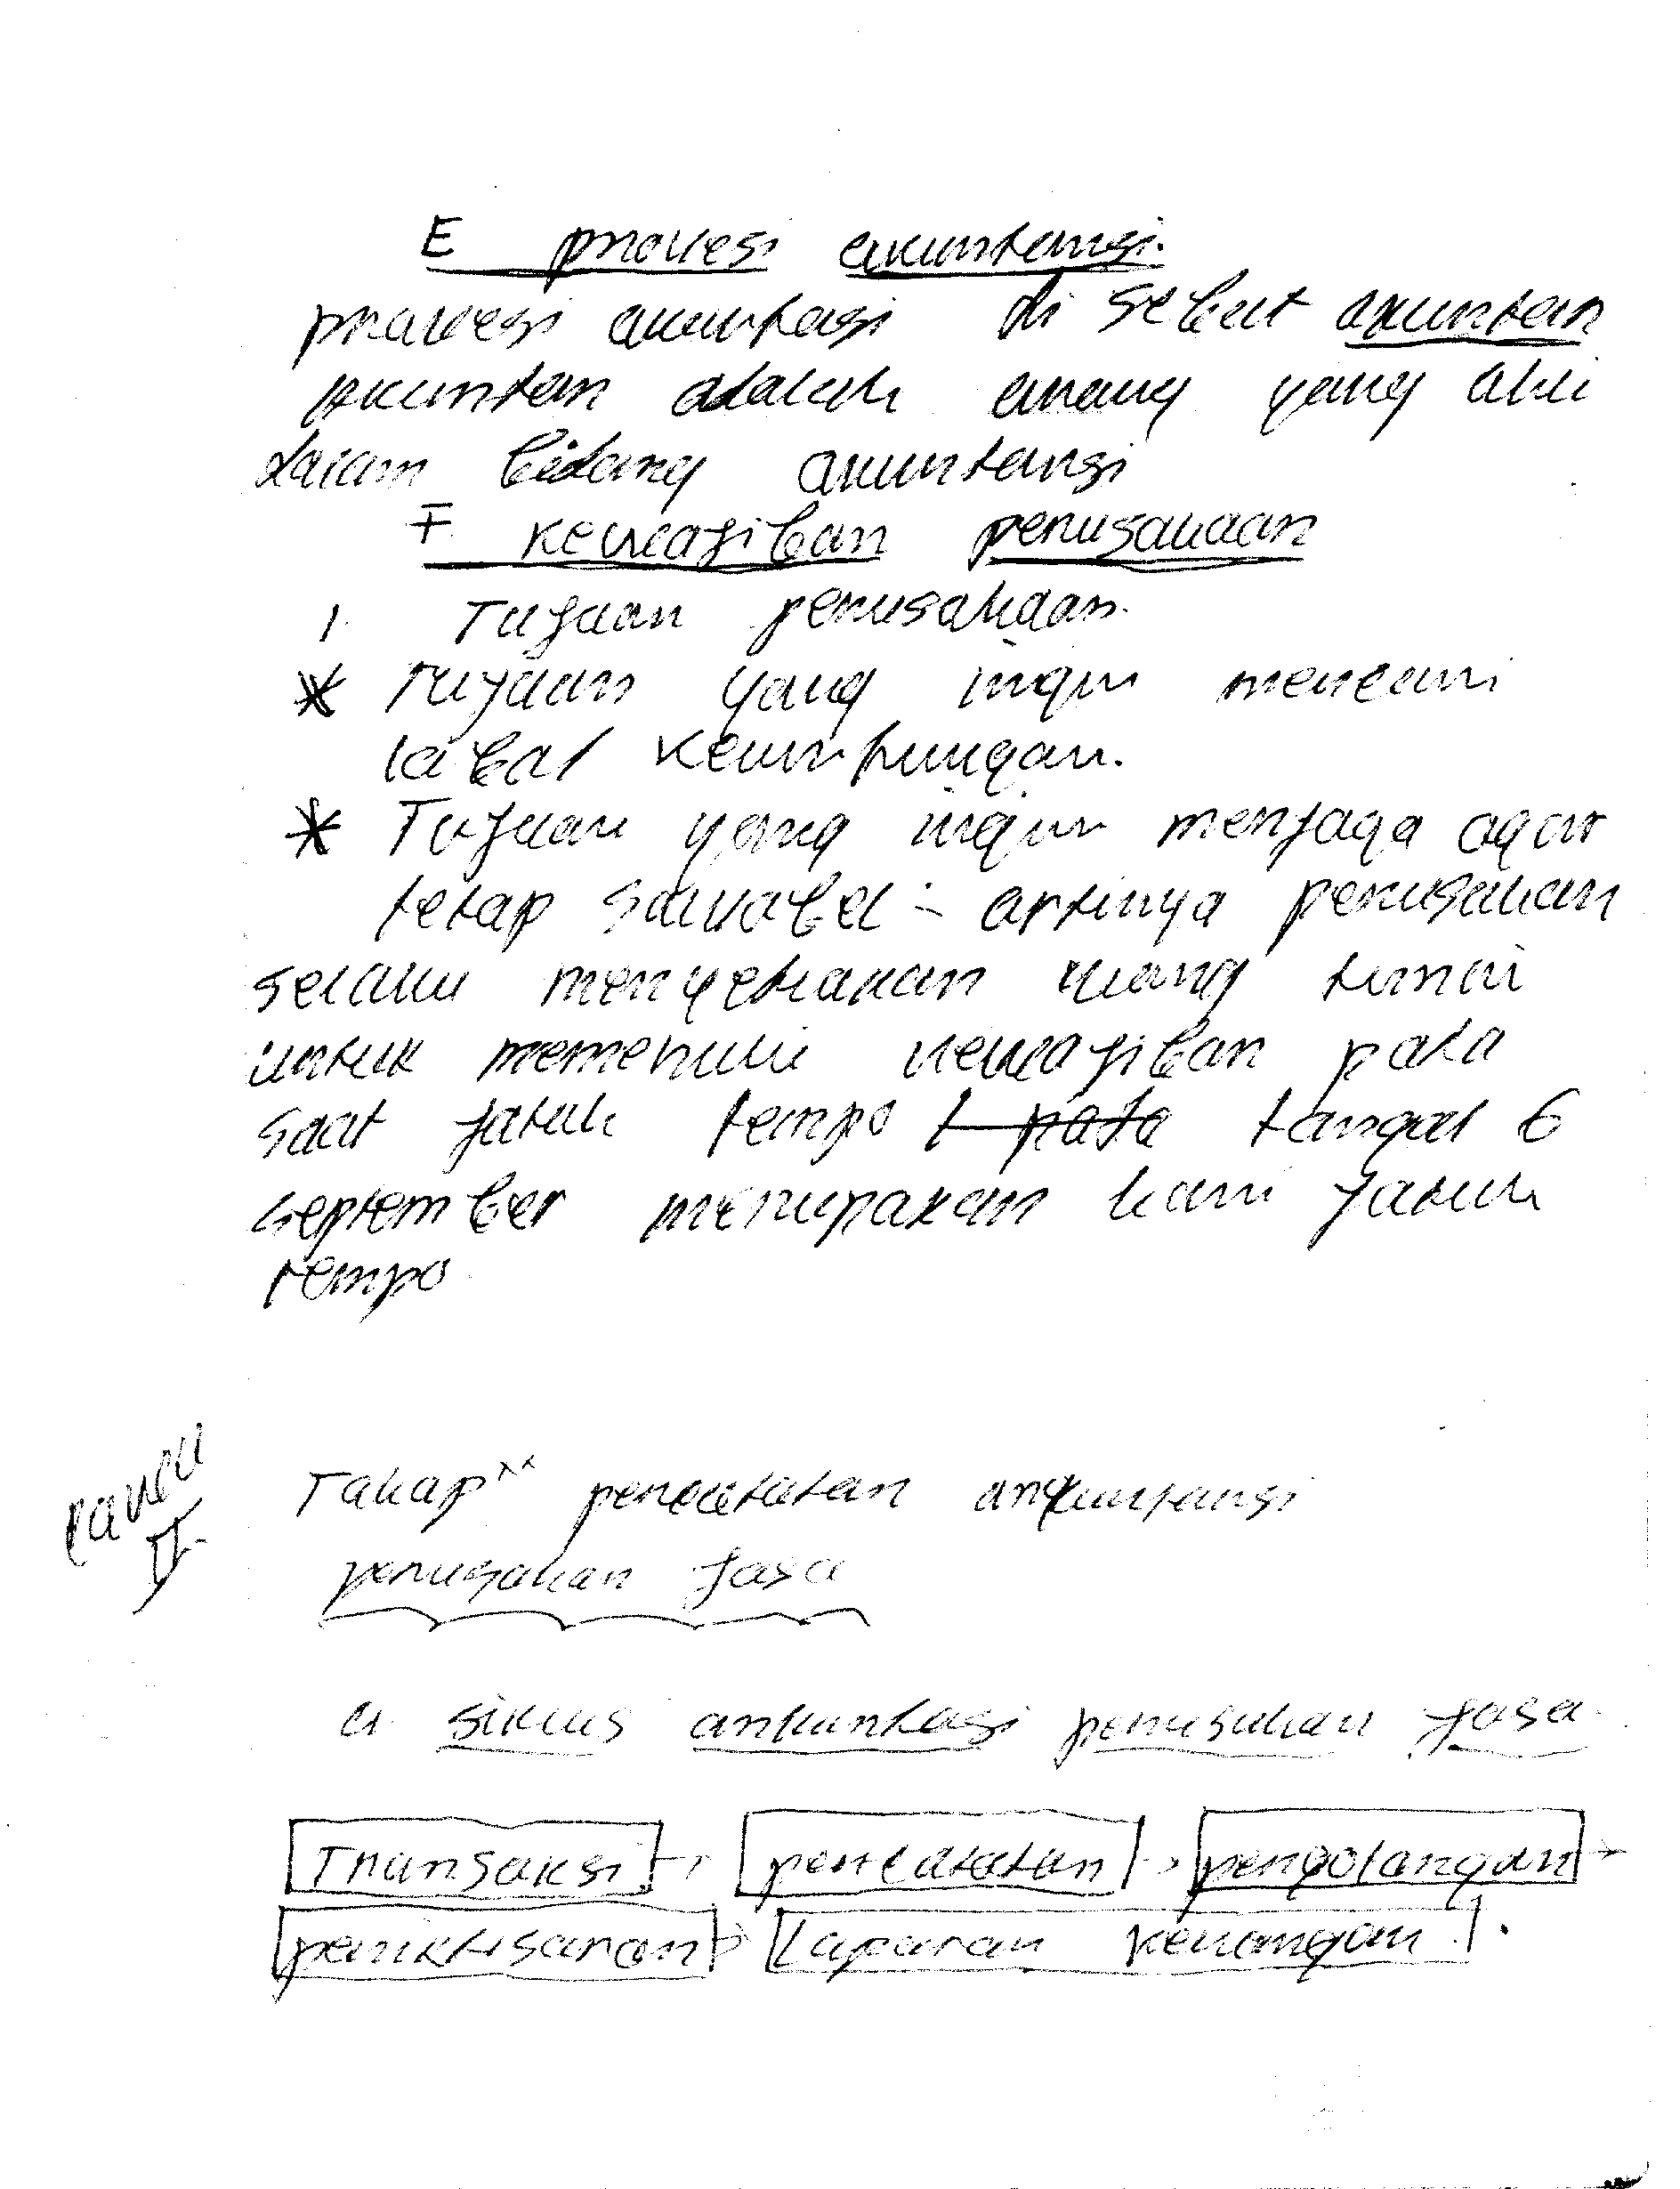 E profesi akuntansi.
profesi akuntasi di sebut akuntan
akuntan adalah orang yang ahli
dalam bidang akuntansi
F. kewajiban perusahaan
1. Tujuan perusahaan.
* Tujuan yang ingin mencari
laba / keuntungan.
* Tujuan yang ingin menjaga agar
tetap solvabel - artinya perusahan
selalu menyediakan uang tunai
untuk memenuhi kewajiban pada
saat jatuh tempo tangal 6
september merupakan hari jatuh
tempo
Tahap^^ pencatatan ankuntansi
perusahan jasa
a. siklus ankuntasi perusahan jasa.
Transaksi → pencatatan → pengolangan →
peniktisaran → Laporan keuangan.